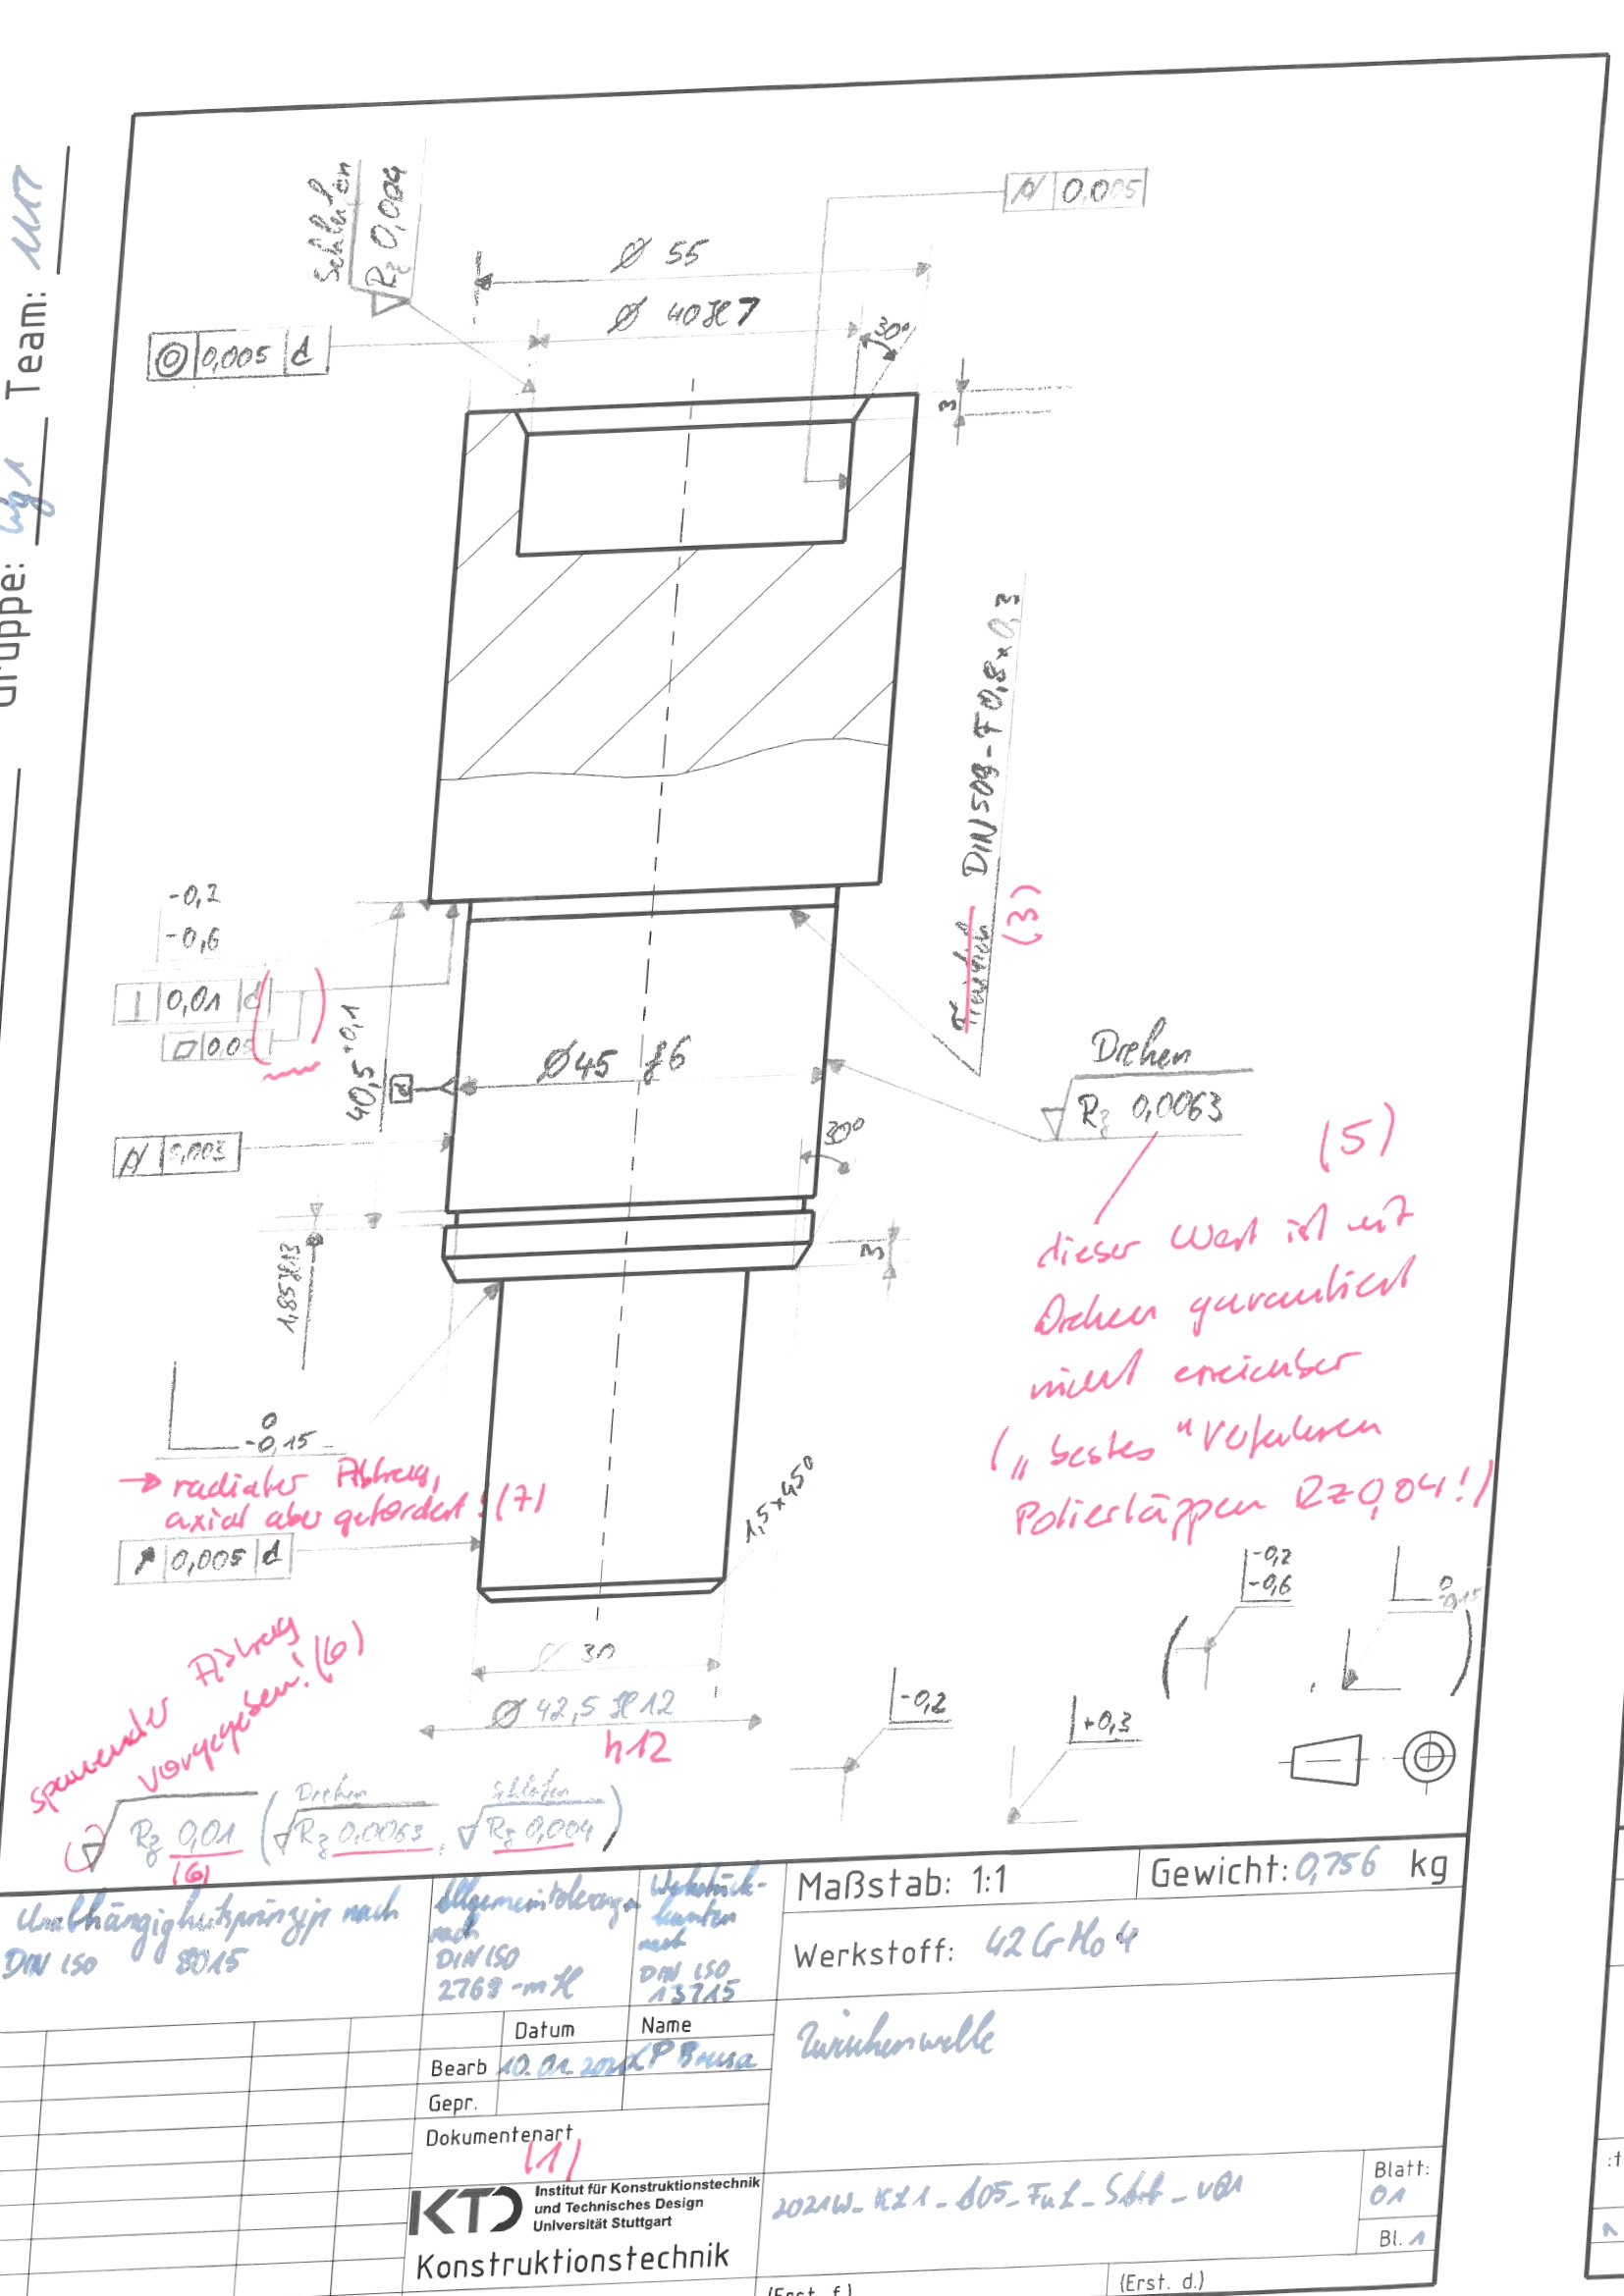 Gruppe:
Team:
Schleifen
Rz 0,004
0,005
Ø 55
Ø 40H7
30°
0,005 d
3
DIN 509-F0,8×0,3
(3)
-0,2
-0,6
0,01 d
0,05
40,5 +0,1
d
Ø45 f6
Drehen
Rz 0,0063
0,003
30°
(5)
dieser Wert ist mit
Drehen garantiert
nicht erreichbar
(„bestes" Verfahren
Polierläppen Rz 0,04!)
1,85H13
3
0
-0,15
→ radialer Abtrag,
axial aber gefordert! (7)
0,005 d
1,5×45°
-0,2
-0,6
0
-0,15
spanender Abtrag
vorgegeben! (6)
Ø 30
Ø 42,5 H12
h12
-0,2
+0,3
Rz 0,01 ( Drehen Rz 0,0063, Schleifen Rz 0,004 )
(6)
Maßstab: 1:1
Gewicht: 0,756 kg
Unabhängigkeitsprinzip nach
DIN ISO 8015
Allgemeintoleranzen
nach
DIN ISO
2768-mH
Werkstück-
kanten
nach
DIN ISO
13715
Werkstoff: 42CrMo4
Datum
Name
Bearb
Zwischenwelle
Gepr.
Dokumentenart
(1)
KTD
Institut für Konstruktionstechnik
und Technisches Design
Universität Stuttgart
Konstruktionstechnik
Blatt:
01
Bl. 1
(Erst. f.)
(Erst. d.)